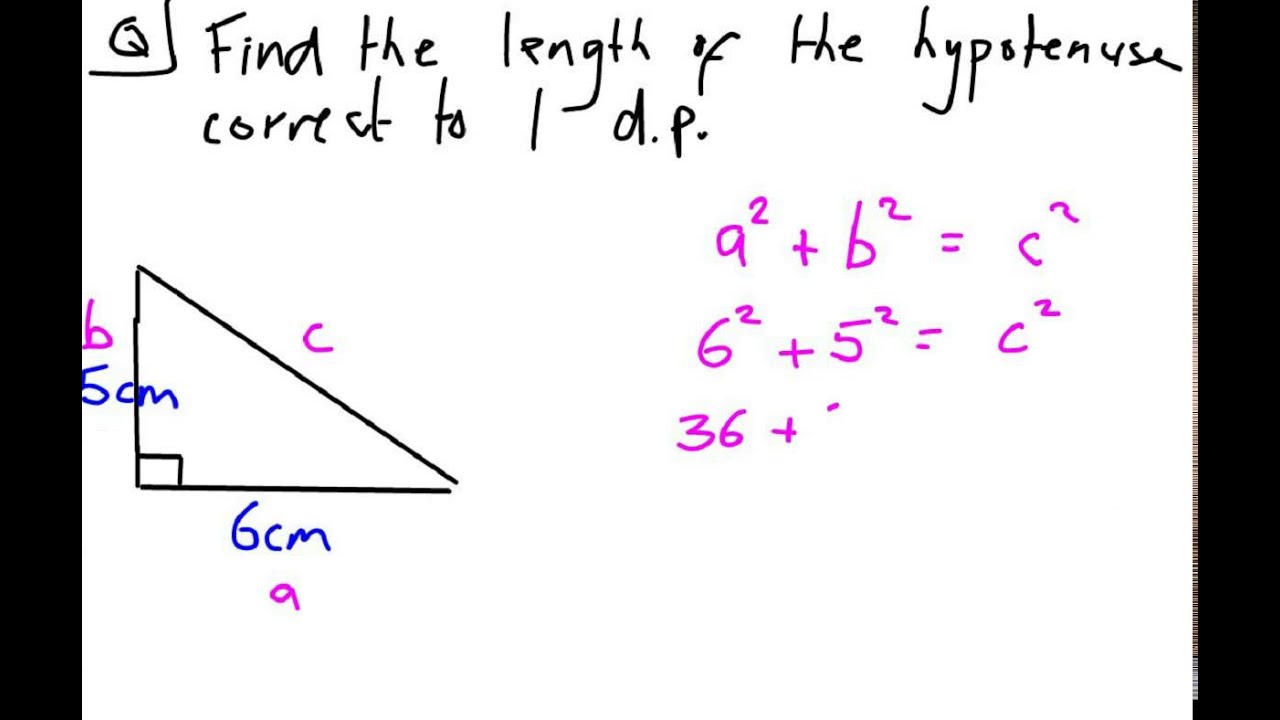 Q Find the length of the hypotenuse
correct to 1 d.p.
a² + b² = c²
6² + 5² = c²
36 +
b
c
5cm
6cm
a